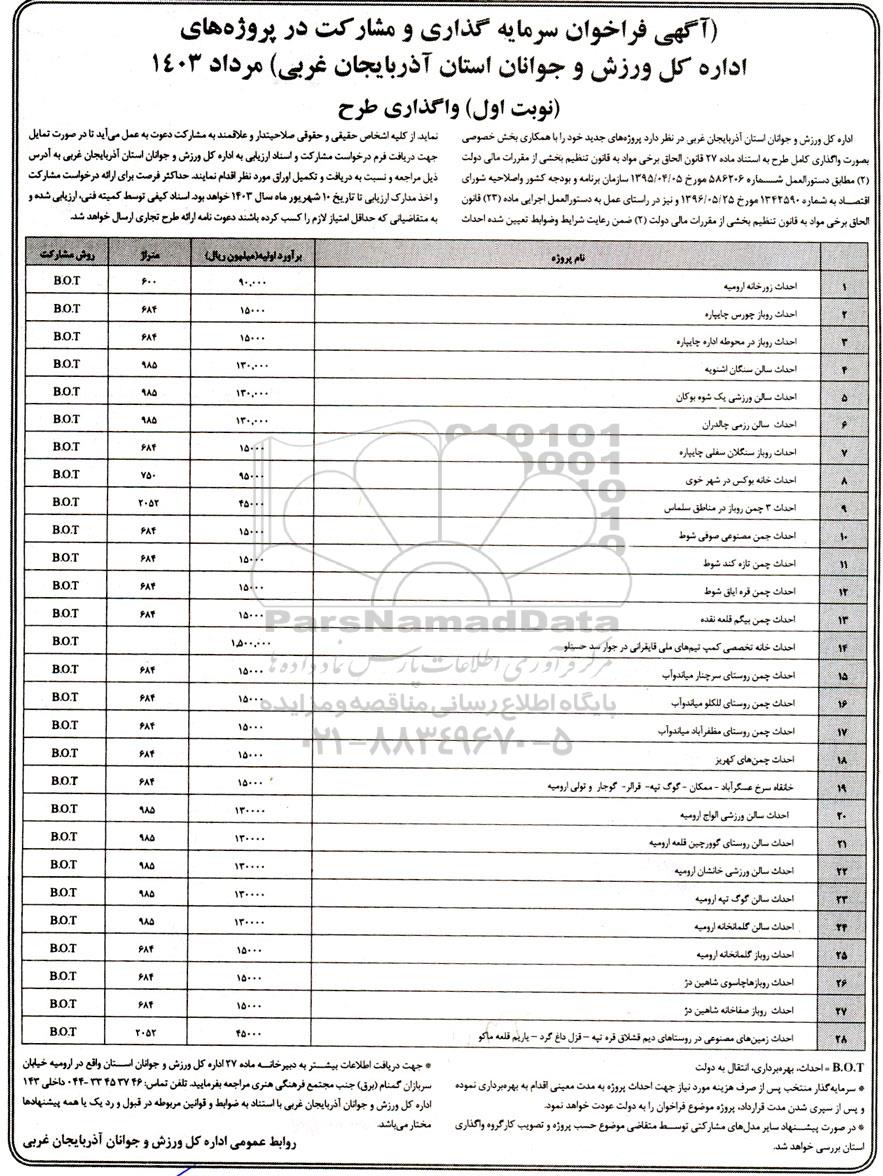 (آگهی فراخوان سرمایه گذاری و مشارکت در پروژه‌های
اداره کل ورزش و جوانان استان آذربایجان غربی) مرداد ۱۴۰۳
(نوبت اول) واگذاری طرح
اداره کل ورزش و جوانان استان آذربایجان غربی در نظر دارد پروژه‌های جدید خود را با همکاری بخش خصوصی
بصورت واگذاری کامل طرح به استناد ماده ۲۷ قانون الحاق برخی مواد به قانون تنظیم بخشی از مقررات مالی دولت
(۲) مطابق دستورالعمل شماره ۵۸۶۲۰۶ مورخ ۱۳۹۵/۰۴/۰۵ سازمان برنامه و بودجه کشور واصلاحیه شورای
اقتصاد به شماره ۱۳۴۲۵۹۰ مورخ ۱۳۹۶/۰۵/۲۵ و نیز در راستای عمل به دستورالعمل اجرایی ماده (۲۳) قانون
الحاق برخی مواد به قانون تنظیم بخشی از مقررات مالی دولت (۲) ضمن رعایت شرایط وضوابط تعیین شده احداث
نماید. از کلیه اشخاص حقیقی و حقوقی صلاحیتدار و علاقمند به مشارکت دعوت به عمل می‌آید تا در صورت تمایل
جهت دریافت فرم درخواست مشارکت و اسناد ارزیابی به اداره کل ورزش و جوانان استان آذربایجان غربی به آدرس
ذیل مراجعه و نسبت به دریافت و تکمیل اوراق مورد نظر اقدام نمایند. حداکثر فرصت برای ارائه درخواست مشارکت
و اخذ مدارک ارزیابی تا تاریخ ۱۰ شهریور ماه سال ۱۴۰۳ خواهد بود. اسناد کیفی توسط کمیته فنی، ارزیابی شده و
به متقاضیانی که حداقل امتیاز لازم را کسب کرده باشند دعوت نامه ارائه طرح تجاری ارسال خواهد شد.
نام پروژه برآورد اولیه(میلیون ریال) متراژ روش مشارکت
۱ احداث زورخانه ارومیه ۹۰,۰۰۰ ۶۰۰ B.O.T
۲ احداث روباز چورس چایپاره ۱۵۰۰۰ ۶۸۴ B.O.T
۳ احداث روباز در محوطه اداره چایپاره ۱۵۰۰۰ ۶۸۴ B.O.T
۴ احداث سالن سنگان اشنویه ۱۳۰,۰۰۰ ۹۸۵ B.O.T
۵ احداث سالن ورزشی یک شوه بوکان ۱۳۰,۰۰۰ ۹۸۵ B.O.T
۶ احداث سالن رزمی چالدران ۱۳۰,۰۰۰ ۹۸۵ B.O.T
۷ احداث روباز سنگلان سفلی چایپاره ۱۵۰۰۰ ۶۸۴ B.O.T
۸ احداث خانه بوکس در شهر خوی ۹۵۰۰۰ ۷۵۰ B.O.T
۹ احداث ۳ چمن روباز در مناطق سلماس ۴۵۰۰۰ ۲۰۵۲ B.O.T
۱۰ احداث جمن مصنوعی صوفی شوط ۱۵۰۰۰ ۶۸۴ B.O.T
۱۱ احداث چمن تازه کند شوط ۱۵۰۰۰ ۶۸۴ B.O.T
۱۲ احداث چمن قره ایاق شوط ۱۵۰۰۰ ۶۸۴ B.O.T
۱۳ احداث چمن بیگم قلعه نقده ۱۵۰۰۰ ۶۸۴ B.O.T
۱۴ احداث خانه تخصصی کمپ تیم‌های ملی قایقرانی در جوار سد حسنلو ۱,۵۰۰,۰۰۰ B.O.T
۱۵ احداث چمن روستای سرچنار میاندوآب ۱۵۰۰۰ ۶۸۴ B.O.T
۱۶ احداث چمن روستای للکلو میاندوآب ۱۵۰۰۰ ۶۸۴ B.O.T
۱۷ احداث چمن روستای مظفرآباد میاندوآب ۱۵۰۰۰ ۶۸۴ B.O.T
۱۸ احداث چمن‌های کهریز ۱۵۰۰۰ ۶۸۴ B.O.T
۱۹ خانقاه سرخ عسگرآباد - ممکان - گوگ تپه- قرالر- گوجار و تولی ارومیه ۱۵۰۰۰ ۶۸۴ B.O.T
۲۰ احداث سالن ورزشی الواج ارومیه ۱۳۰۰۰۰ ۹۸۵ B.O.T
۲۱ احداث سالن روستای گوورچین قلعه ارومیه ۱۳۰۰۰۰ ۹۸۵ B.O.T
۲۲ احداث سالن ورزشی خانشان ارومیه ۱۳۰۰۰۰ ۹۸۵ B.O.T
۲۳ احداث سالن گوگ تپه ارومیه ۱۳۰۰۰۰ ۹۸۵ B.O.T
۲۴ احداث سالن گلمانخانه ارومیه ۱۳۰۰۰۰ ۹۸۵ B.O.T
۲۵ احداث روباز گلمانخانه ارومیه ۱۵۰۰۰ ۶۸۴ B.O.T
۲۶ احداث روبازهاچاسوی شاهین دژ ۱۵۰۰۰ ۶۸۴ B.O.T
۲۷ احداث روباز صفاخانه شاهین دژ ۱۵۰۰۰ ۶۸۴ B.O.T
۲۸ احداث زمین‌های مصنوعی در روستاهای دیم قشلاق قره تپه – قزل داغ گرد – یاریم قلعه ماکو ۴۵۰۰۰ ۲۰۵۲ B.O.T
ParsNamadData
مرکز فرآوری اطلاعات پارس نماد داده‌ها
پایگاه اطلاع رسانی مناقصه و مزایده
۰۲۱-۸۸۳۴۹۶۷۰-۵
B.O.T = احداث، بهره‌برداری، انتقال به دولت
* سرمایه‌گذار منتخب پس از صرف هزینه مورد نیاز جهت احداث پروژه به مدت معینی اقدام به بهره‌برداری نموده
و پس از سپری شدن مدت قرارداد، پروژه موضوع فراخوان را به دولت عودت خواهد نمود.
* در صورت پیشنهاد سایر مدل‌های مشارکتی توسط متقاضی موضوع حسب پروژه و تصویب کارگروه واگذاری
استان بررسی خواهد شد.
* جهت دریافت اطلاعات بیشتر به دبیرخانه ماده ۲۷ اداره کل ورزش و جوانان استان واقع در ارومیه خیابان
سربازان گمنام (برق) جنب مجتمع فرهنگی هنری مراجعه بفرمایید. تلفن تماس: ۴۶ ۳۷ ۴۵ ۳۳ -۰۴۴ داخلی ۱۴۳
اداره کل ورزش و جوانان آذربایجان غربی با استناد به ضوابط و قوانین مربوطه در قبول و رد یک یا همه پیشنهادها
مختار می‌باشد.
روابط عمومی اداره کل ورزش و جوانان آذربایجان غربی